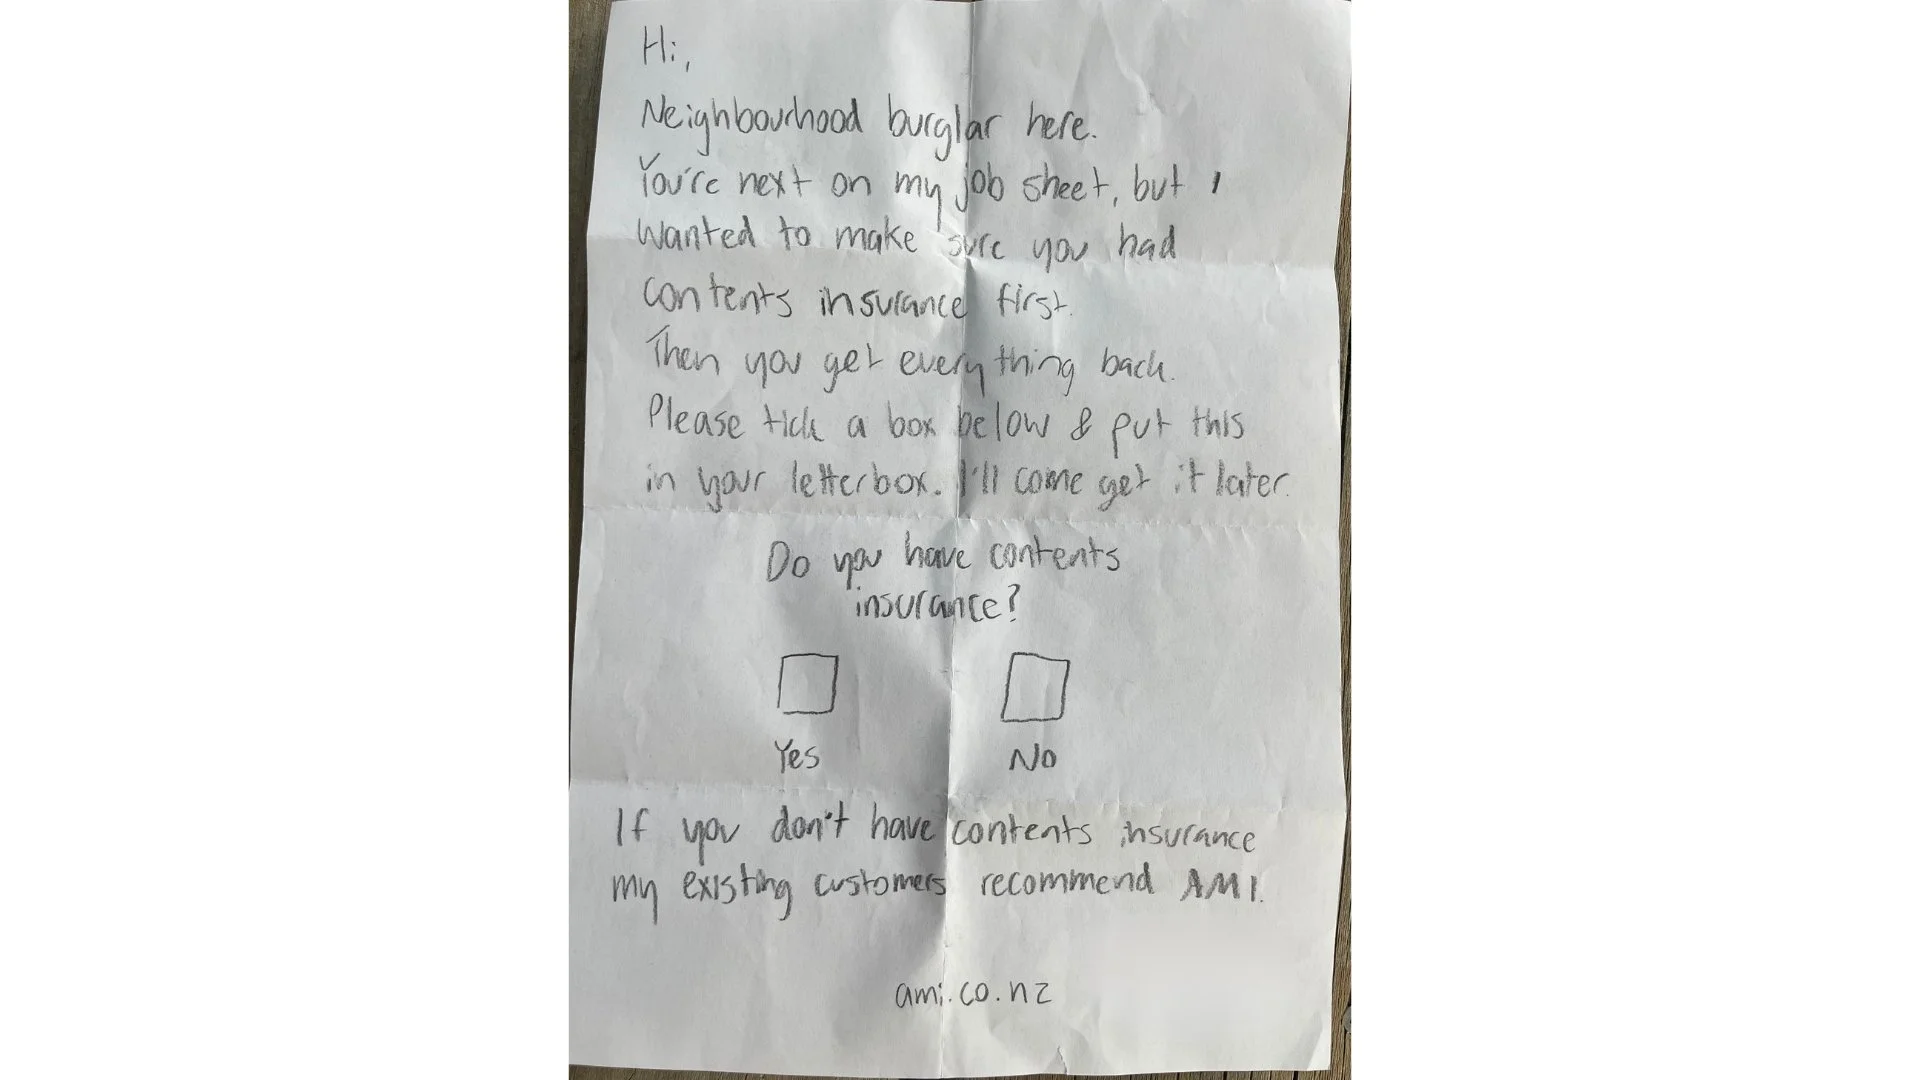 Hi,
Neighbourhood burglar here.
You're next on my job sheet, but I
wanted to make sure you had
contents insurance first.
Then you get everything back.
Please tick a box below & put this
in your letterbox. I'll come get it later.
Do you have contents
insurance?
Yes No
If you don't have contents insurance
my existing customers recommend AMI.
ami.co.nz